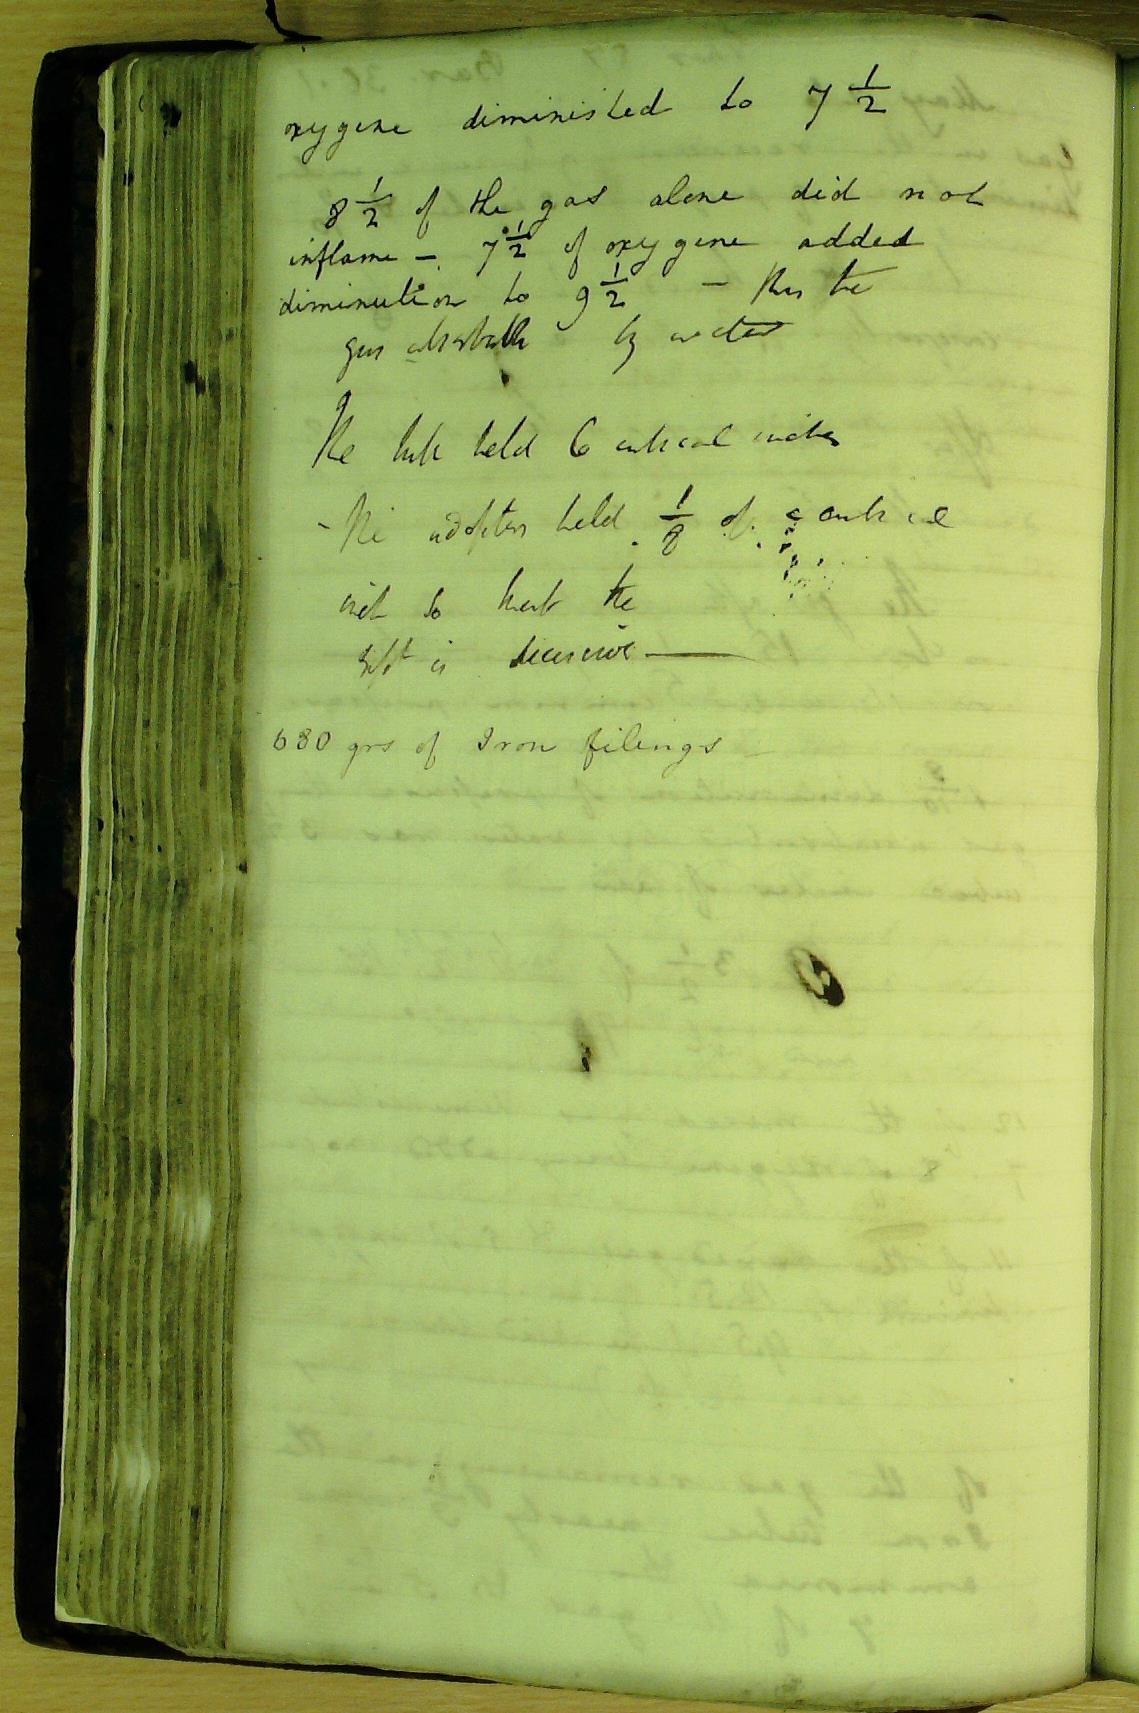 oxygene diminished to 7 1/2
8 1/2 of the gas alone did not
inflame - 7 1/2 of oxygene added
diminution to 9 1/2 - this the
gas absorbable by water
The tube held 6 cubical inches
- The adopters held 1/8 of a cubical
inch so that the
is decisive
680 grs of Iron filings